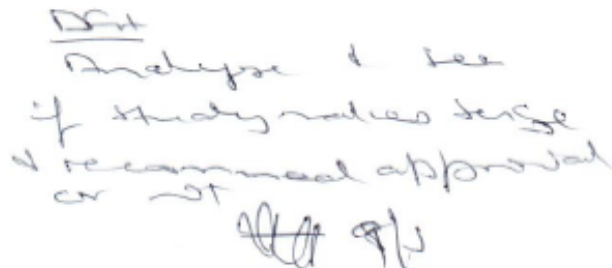 Analyse & see
if study makes sense
& recommend approval
or not